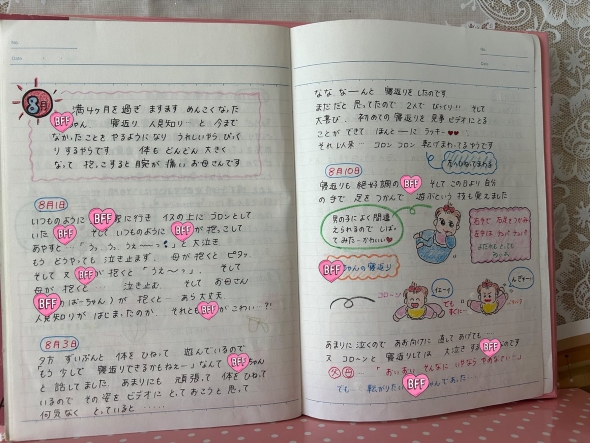 No.
Date
8月
満4ヶ月を過ぎ ますます めんこくなった
BFF ちゃん 寝返り 人見知り… と 今まで
なかったことを やるようになり うれしいやら びっく
りするやらです 体も どんどん 大きく
なって 抱っこすると 腕が 痛い お母さんです
8月1日
いつものように BFF 宅に行き イスの上に ゴロンとして
いた BFF そして いつものように BFF が 抱っこして
あやすと… 「うっ。うっ。うぇーっ」 と 大泣き
もう どうやっても 泣き止まず、母が 抱くと ピタッ。
そして 又 BFF が 抱くと 「うえ〜っ。」 そして
母が 抱くと… 泣き止む。 そして お母さん
BFF のばーちゃん)が 抱くと… あら 大丈夫
人見知りが はじまったのか、それとも BFF が こわい…?!
8月3日
夕方 ずいぶんと 体を ひねって 遊んでいるので
「もう 少しで 寝返りできるかもねぇー」なんて BFF ちゃん
と 話してました あまりにも 頑張って 体を ひねって
いるので その姿を ビデオに とっておこうと 思って
何気なく とっていると ……
No.
Date
なな なーんと 寝返りを したのです
まだだと 思ってたので 2人で びっくり!! そして
大喜び、初めての 寝返りを 見事 ビデオにとる
ことが できて ほんとーに ラッキー♥♥
それ以来… コロン コロン 転がってる ようです
8月10日
寝返りも 絶好調の BFF そして この日より 自分
の手で 足を つかんで 遊ぶという 技も 覚えました
男の子に よく 間違
えられるので しばっ
てみた…かわいい♥
右手で 右足をつかみ
BFF ちゃんの 寝返り
コローン
でも
すぐに…
あまりに 泣くので あお向けに 直して あげても
又 コローンと 寝返りしては 大泣き する BFF のです
父 母 … 「おいおい そんなに いやなら やめなさい…」
でも… 転がりたい BFF ちゃんであった…